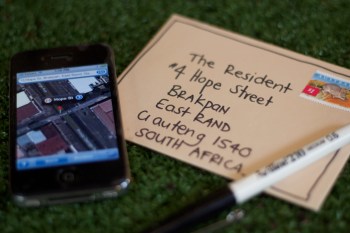 Hope St
The Resident
#4 Hope Street
BRAKPAN
EAST RAND
Gauteng 1540
SOUTH AFRICA.